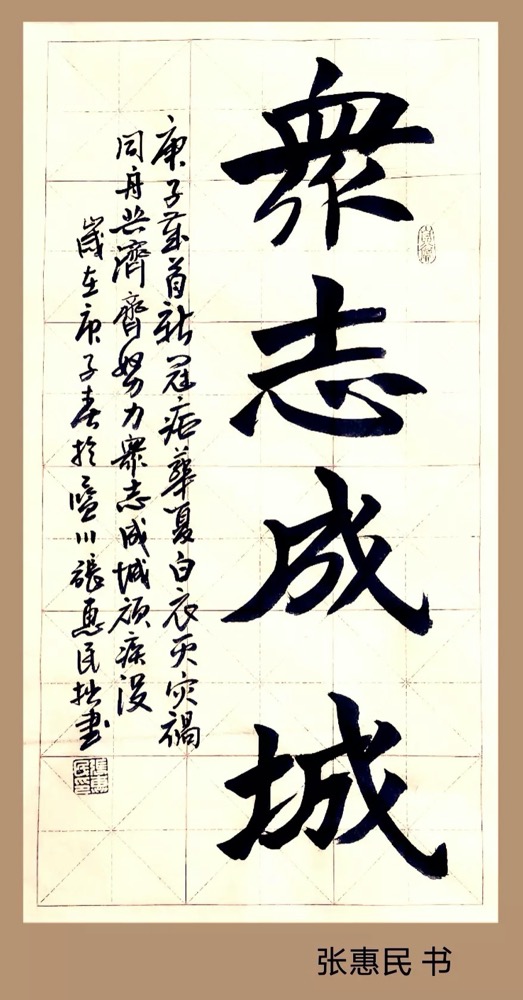 衆志成城
庚子歲首新冠疟華夏白衣灭灾禍
同舟共濟齊努力衆志成城顽疾没
歲在庚子春於臨川張惠民拙書
張惠民印
张惠民 书